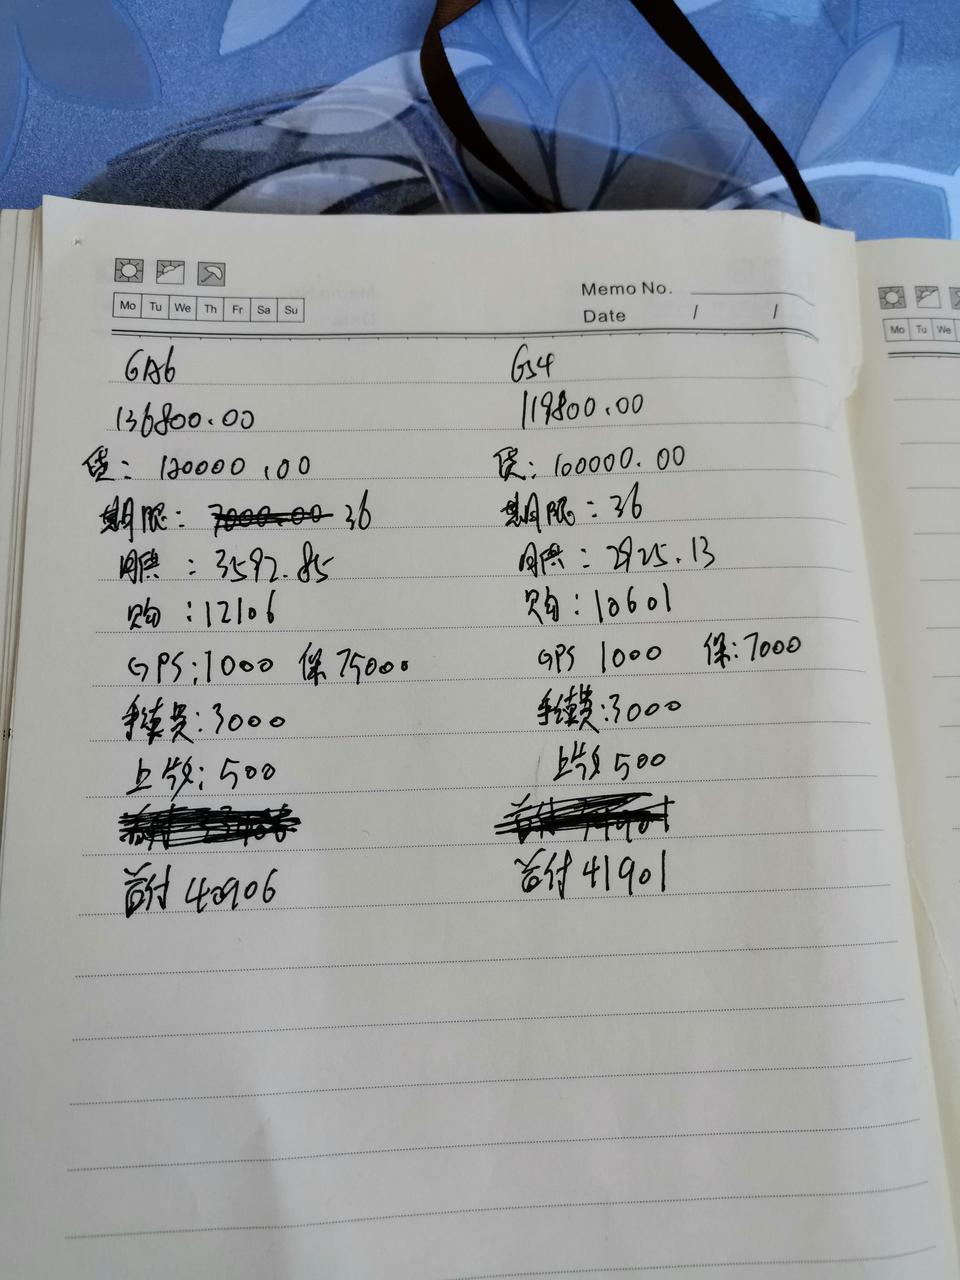 Memo No.
Mo Tu We Th Fr Sa Su
Date / /
Mo Tu We
GA6 GS4
136800.00 119800.00
贷: 120000.00 贷: 100000.00
期限: 36 期限: 36
月供: 3592.85 月供: 2925.13
购: 12106 购: 10601
GPS: 1000 保 75000 GPS 1000 保: 7000
手续费: 3000 手续费: 3000
上牌: 500 上牌 500
首付 40906 首付 41901